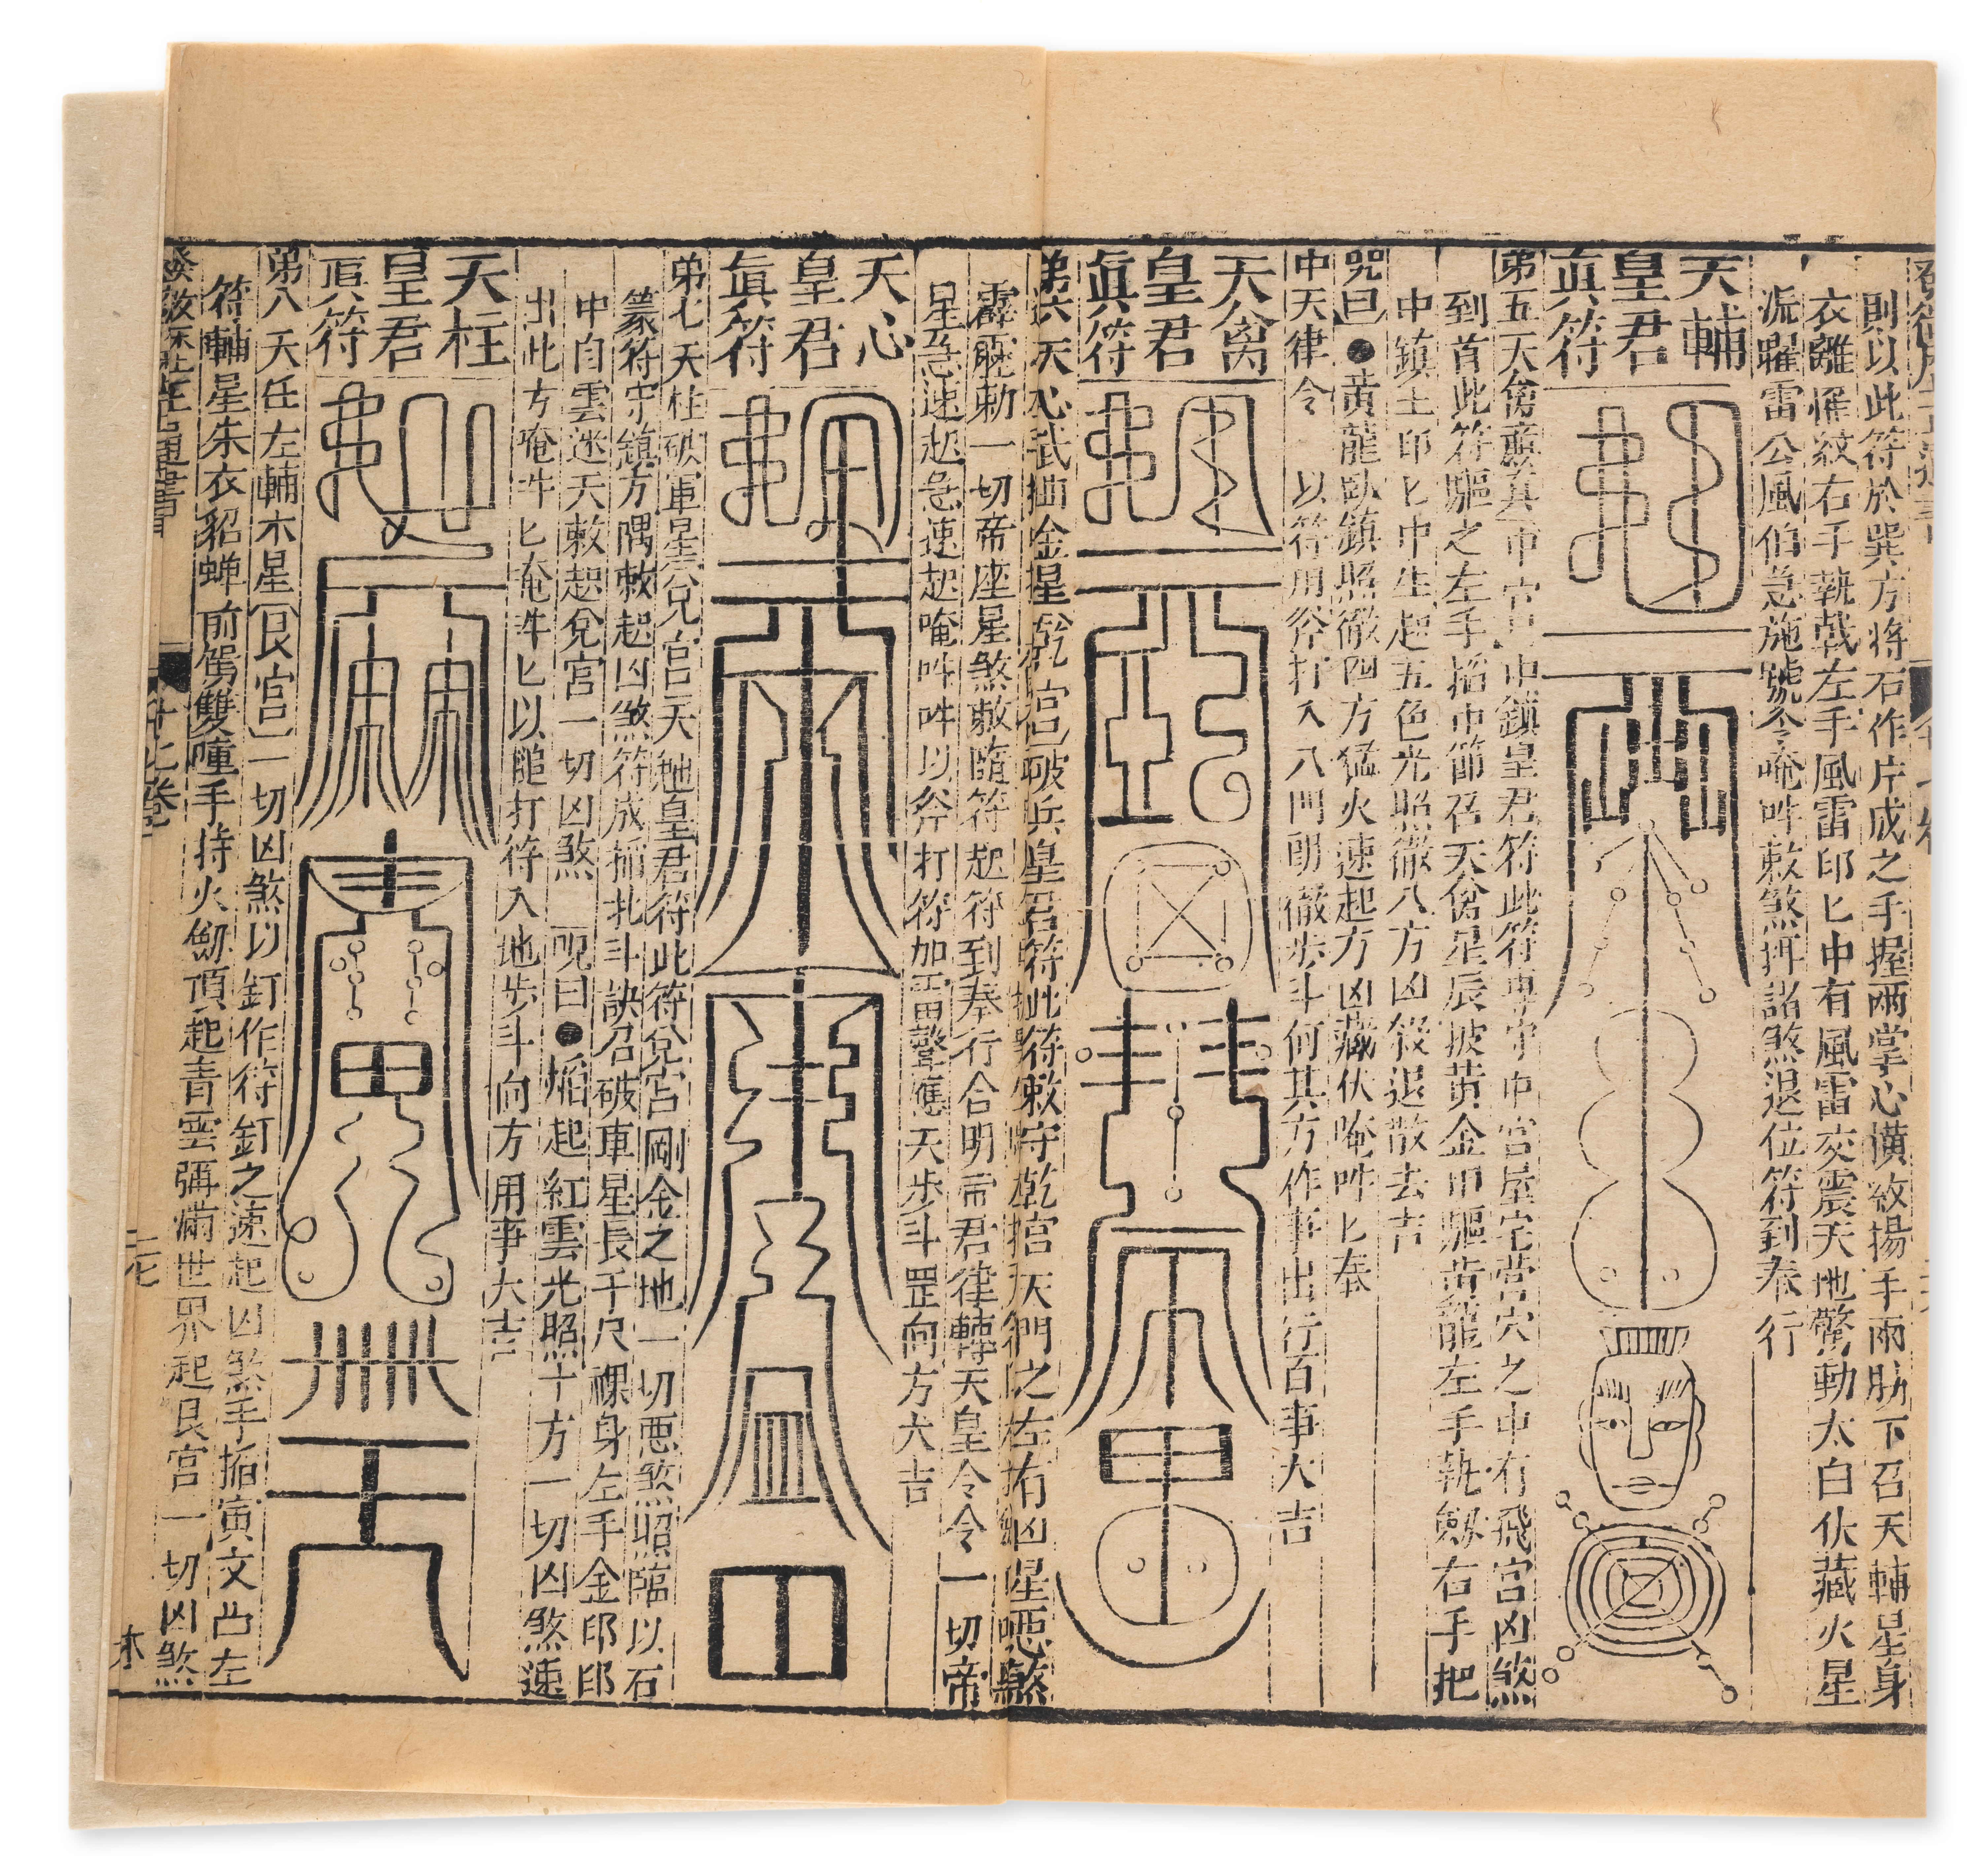 則以此符於巽方將石作片成之手握兩掌心橫紋揚手雨肋下召天輔星身
衣離羅紋右手執戟左手風雷印匕中有風雷交震天地驚動太白伏藏火星
流曜雷公風伯急施號令唵吽敕煞摂諸煞退位符到奉行
天輔
皇君
眞符
弟五天禽廉貞中宮中鎮皇君符此符專守中宮屋宅營穴之中有飛宮凶煞
到首此符驅之左手招中節召天禽星辰披黃金甲驅黃龍左手執劔右手把
中鎮土印匕中生起五色光照徹八方凶殺退散去吉
咒曰●黃龍臥鎮照徹四方猛火速起方凶藏伏唵吽匕奉
中天律令 以符用斧打入八門朗徹步斗何其方作事出行百事大吉
天禽
皇君
眞符
弟六天心武曲金星乾宮破兵皇君符此符敕守乾宮招天門之左有凶星惡煞
霹靂勅一切帝座星煞敕隨符起符到奉行合明帝君律轉天皇令令一切帝
星急速起急速起唵吽吽以斧打符加雷聲應天步斗罡向方大吉
天心
皇君
眞符
弟七天柱破軍星兌宮天地皇君符此符兌宮剛金之地一切惡煞照臨以石
篆符守鎮方隅敕起凶煞符成捕北斗訣召破車星長千尺裸身左手金印印
中白雲迷天敕起兌宮一切凶煞 呪曰●焰起紅雲光照十方一切凶煞速
出此方唵吽匕唵吽匕以鎚打符入地步斗向方用事大吉
天柱
皇君
眞符
弟八天任左輔木星艮宮一切凶煞以釘作符釘之速起凶煞手招寅文凸左
符輔星朱衣貂蟬前駕雙幢手持火劔頂起青雲彌滿世界起艮宮一切凶煞